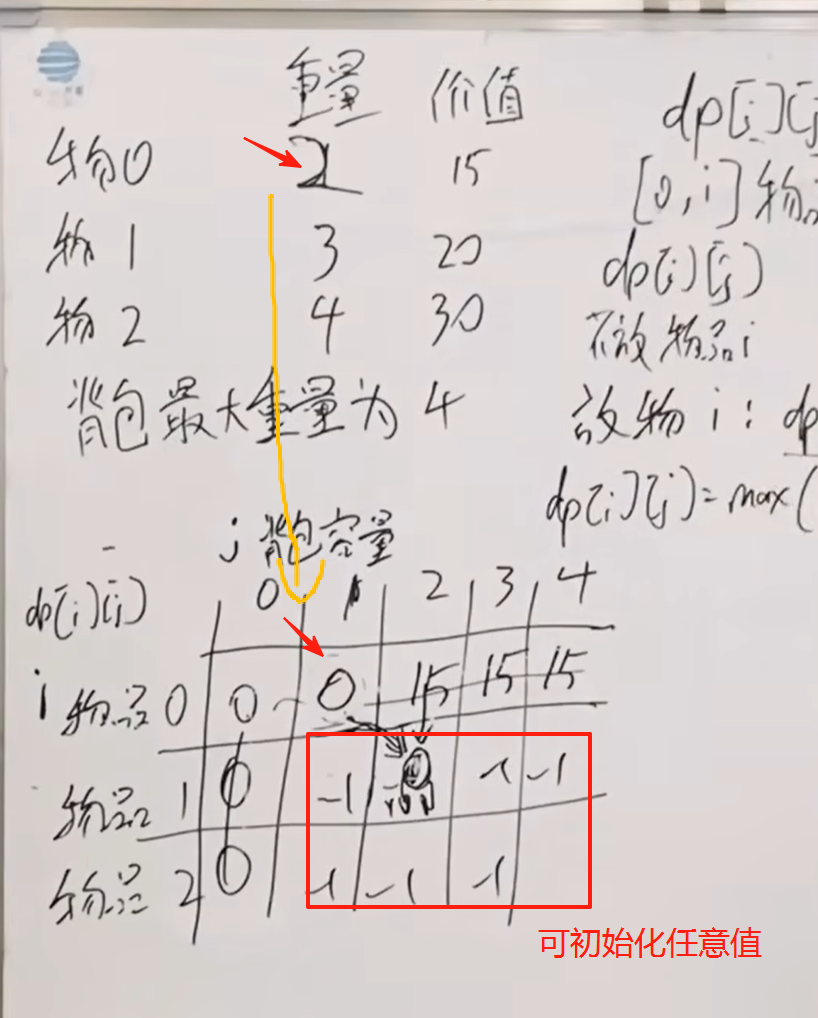 重量 价值
物0 2 15
物1 3 20
物2 4 30
背包最大重量为4
dp[i][j
[0,i]物品
dp[i][j]
不放物品i
放物i: dp
dp[i][j]=max(
j 背包容量
dp[i][j] 0 1 2 3 4
i 物品0 0 0 15 15 15
物品1 0 -1 -1 -1
物品2 0 -1 -1 -1
可初始化任意值